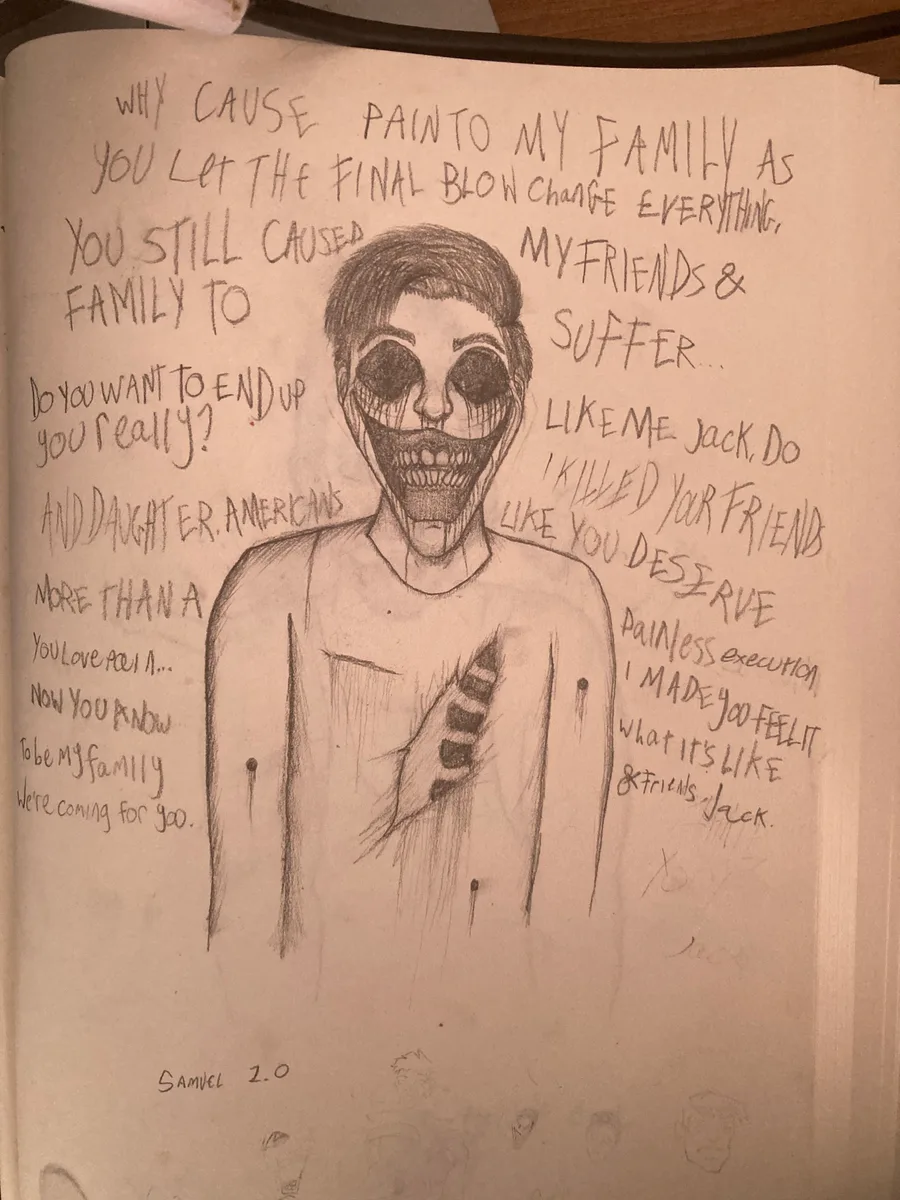 WHY CAUSE PAIN TO MY FAMILY AS
YOU Let THE FINAL BLOW ChanGE EVERYTHING.
YOU STILL CAUSED MY FRIENDS &
FAMILY TO SUFFER...
DO YOU WANT TO END UP LIKE ME Jack. DO
you really? I KILLED YOUR FRIEND
AND DAUGHTER. AMERICANS LIKE YOU DESERVE
MORE THAN A PainLess execution
YOU LOVE Pain... I MADE YOU FEEL IT
NOW YOU KNOW What IT'S LIKE
To be My family & Friends Jack.
We're coming for you.
SAMUEL 2.0